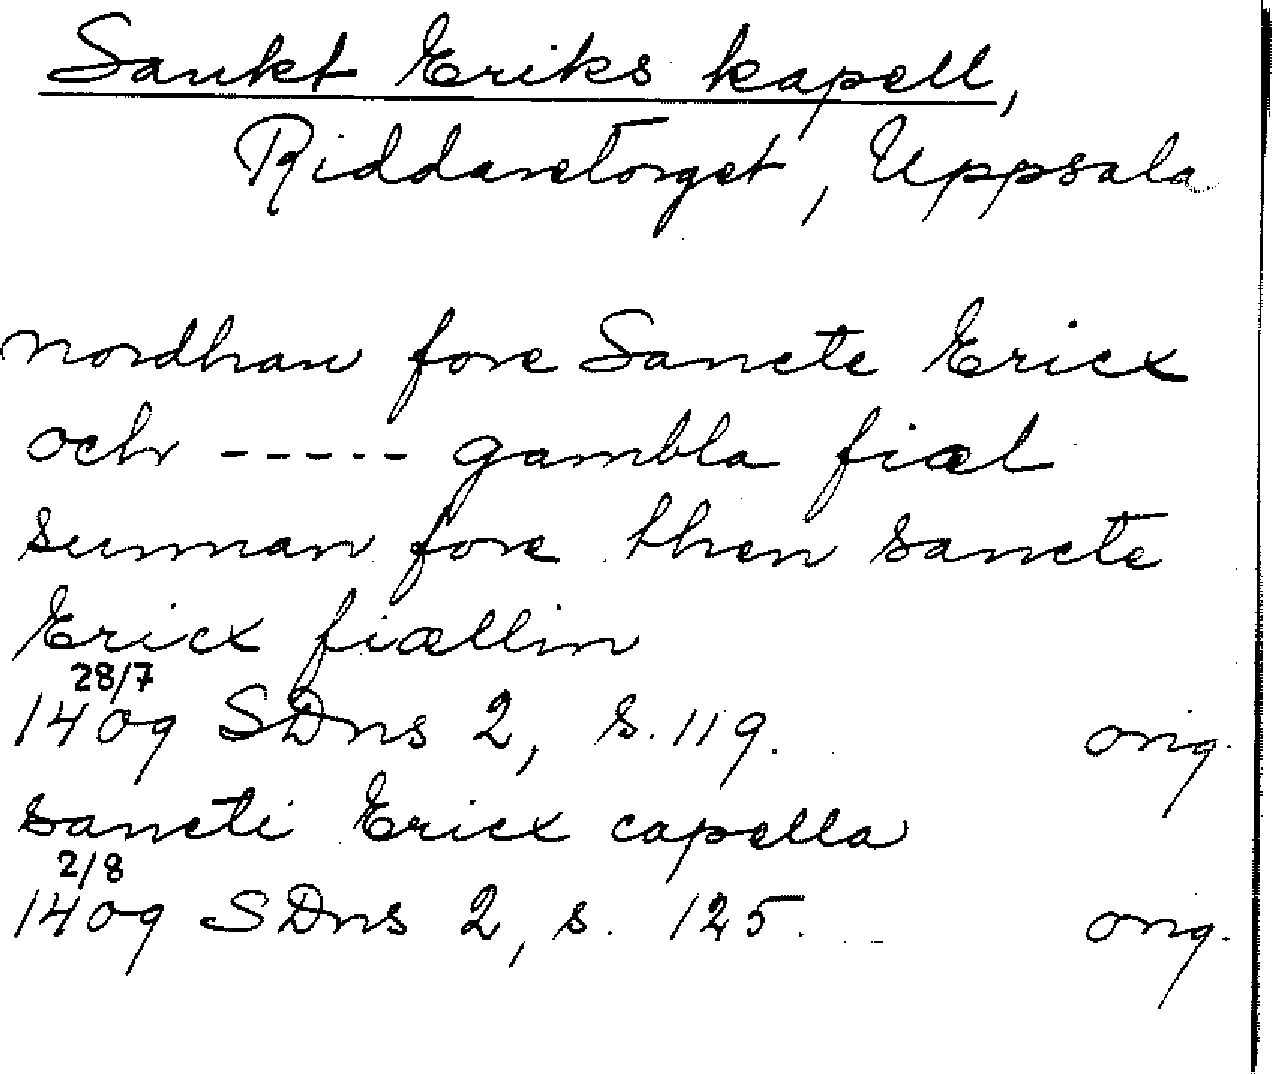 Sankt Eriks kapell,
Riddaretorget, Uppsala
nordhan fore Sancte Ericx
och ----- gambla fiæl
sunnan fore then sancte
Ericx fiællin
28/7
1409 SDns 2, s. 119. orig.
sancti Ericx capella
2/8
1409 SDns 2, s. 125. orig.